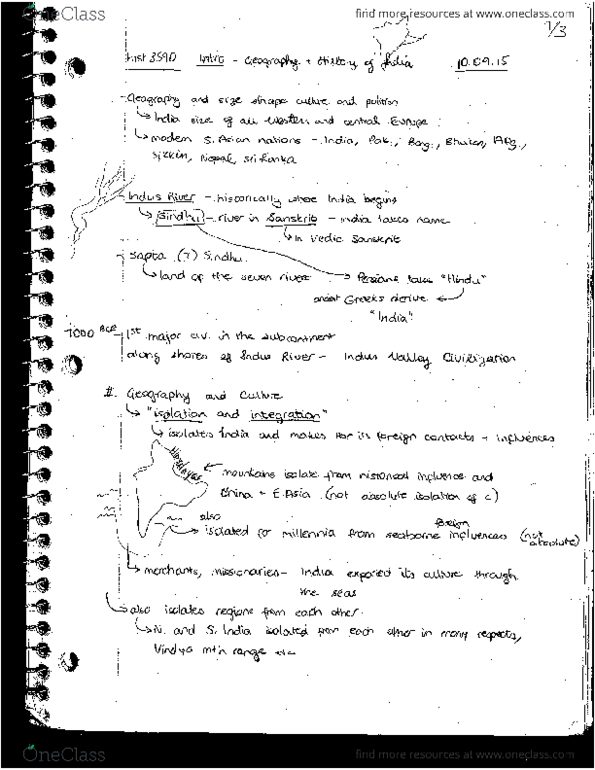 OneClass
find more resources at www.oneclass.com
1/3
Hist 3S90 Intro - Geography + History of India 10.09.15
- Geography and size shape culture and politics
India size of all western and central Europe
modern S. Asian nations - India, Pak., Bang., Bhutan, Afg.,
Sikkim, Nepal, Sri Lanka
- Indus River - historically where India begins
Sindhu - river in Sanskrit - India takes name
in Vedic Sanskrit
- Sapta (7) Sindhu
land of the seven river
Persians take "Hindu"
Greeks derive
"India"
7000 BCE - 1st major civ. in the subcontinent
along shores of Indus River - Indus Valley Civilization
II. Geography and Culture
"isolation and integration"
isolates India and makes for its foreign contacts + influences
Himalayas
mountains isolate from historical influence and
China + E. Asia (not absolute isolation of c)
also
foreign
isolated for millennia from seaborne influences (not absolute)
merchants, missionaries - India exported its culture through
the seas
also isolates regions from each other
N. and S. India isolated from each other in many respects,
Vindya mt'n range etc
OneClass
find more resources at www.oneclass.com